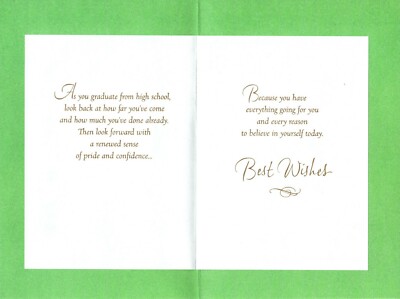 As you graduate from high school,
look back at how far you've come
and how much you've done already.
Then look forward with
a renewed sense
of pride and confidence..
Because you have
everything going for you
and every reason
to believe in yourself today.
Best Wishes